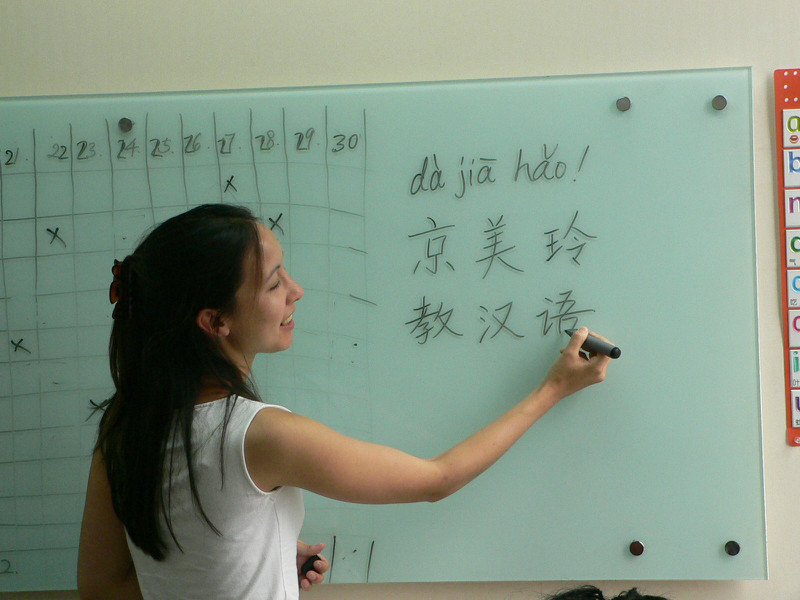 21. 22 23. 24. 25. 26. 27. 28. 29. 30
x
x
x
x
dà jiā hǎo!
京美玲
教汉语
a
b